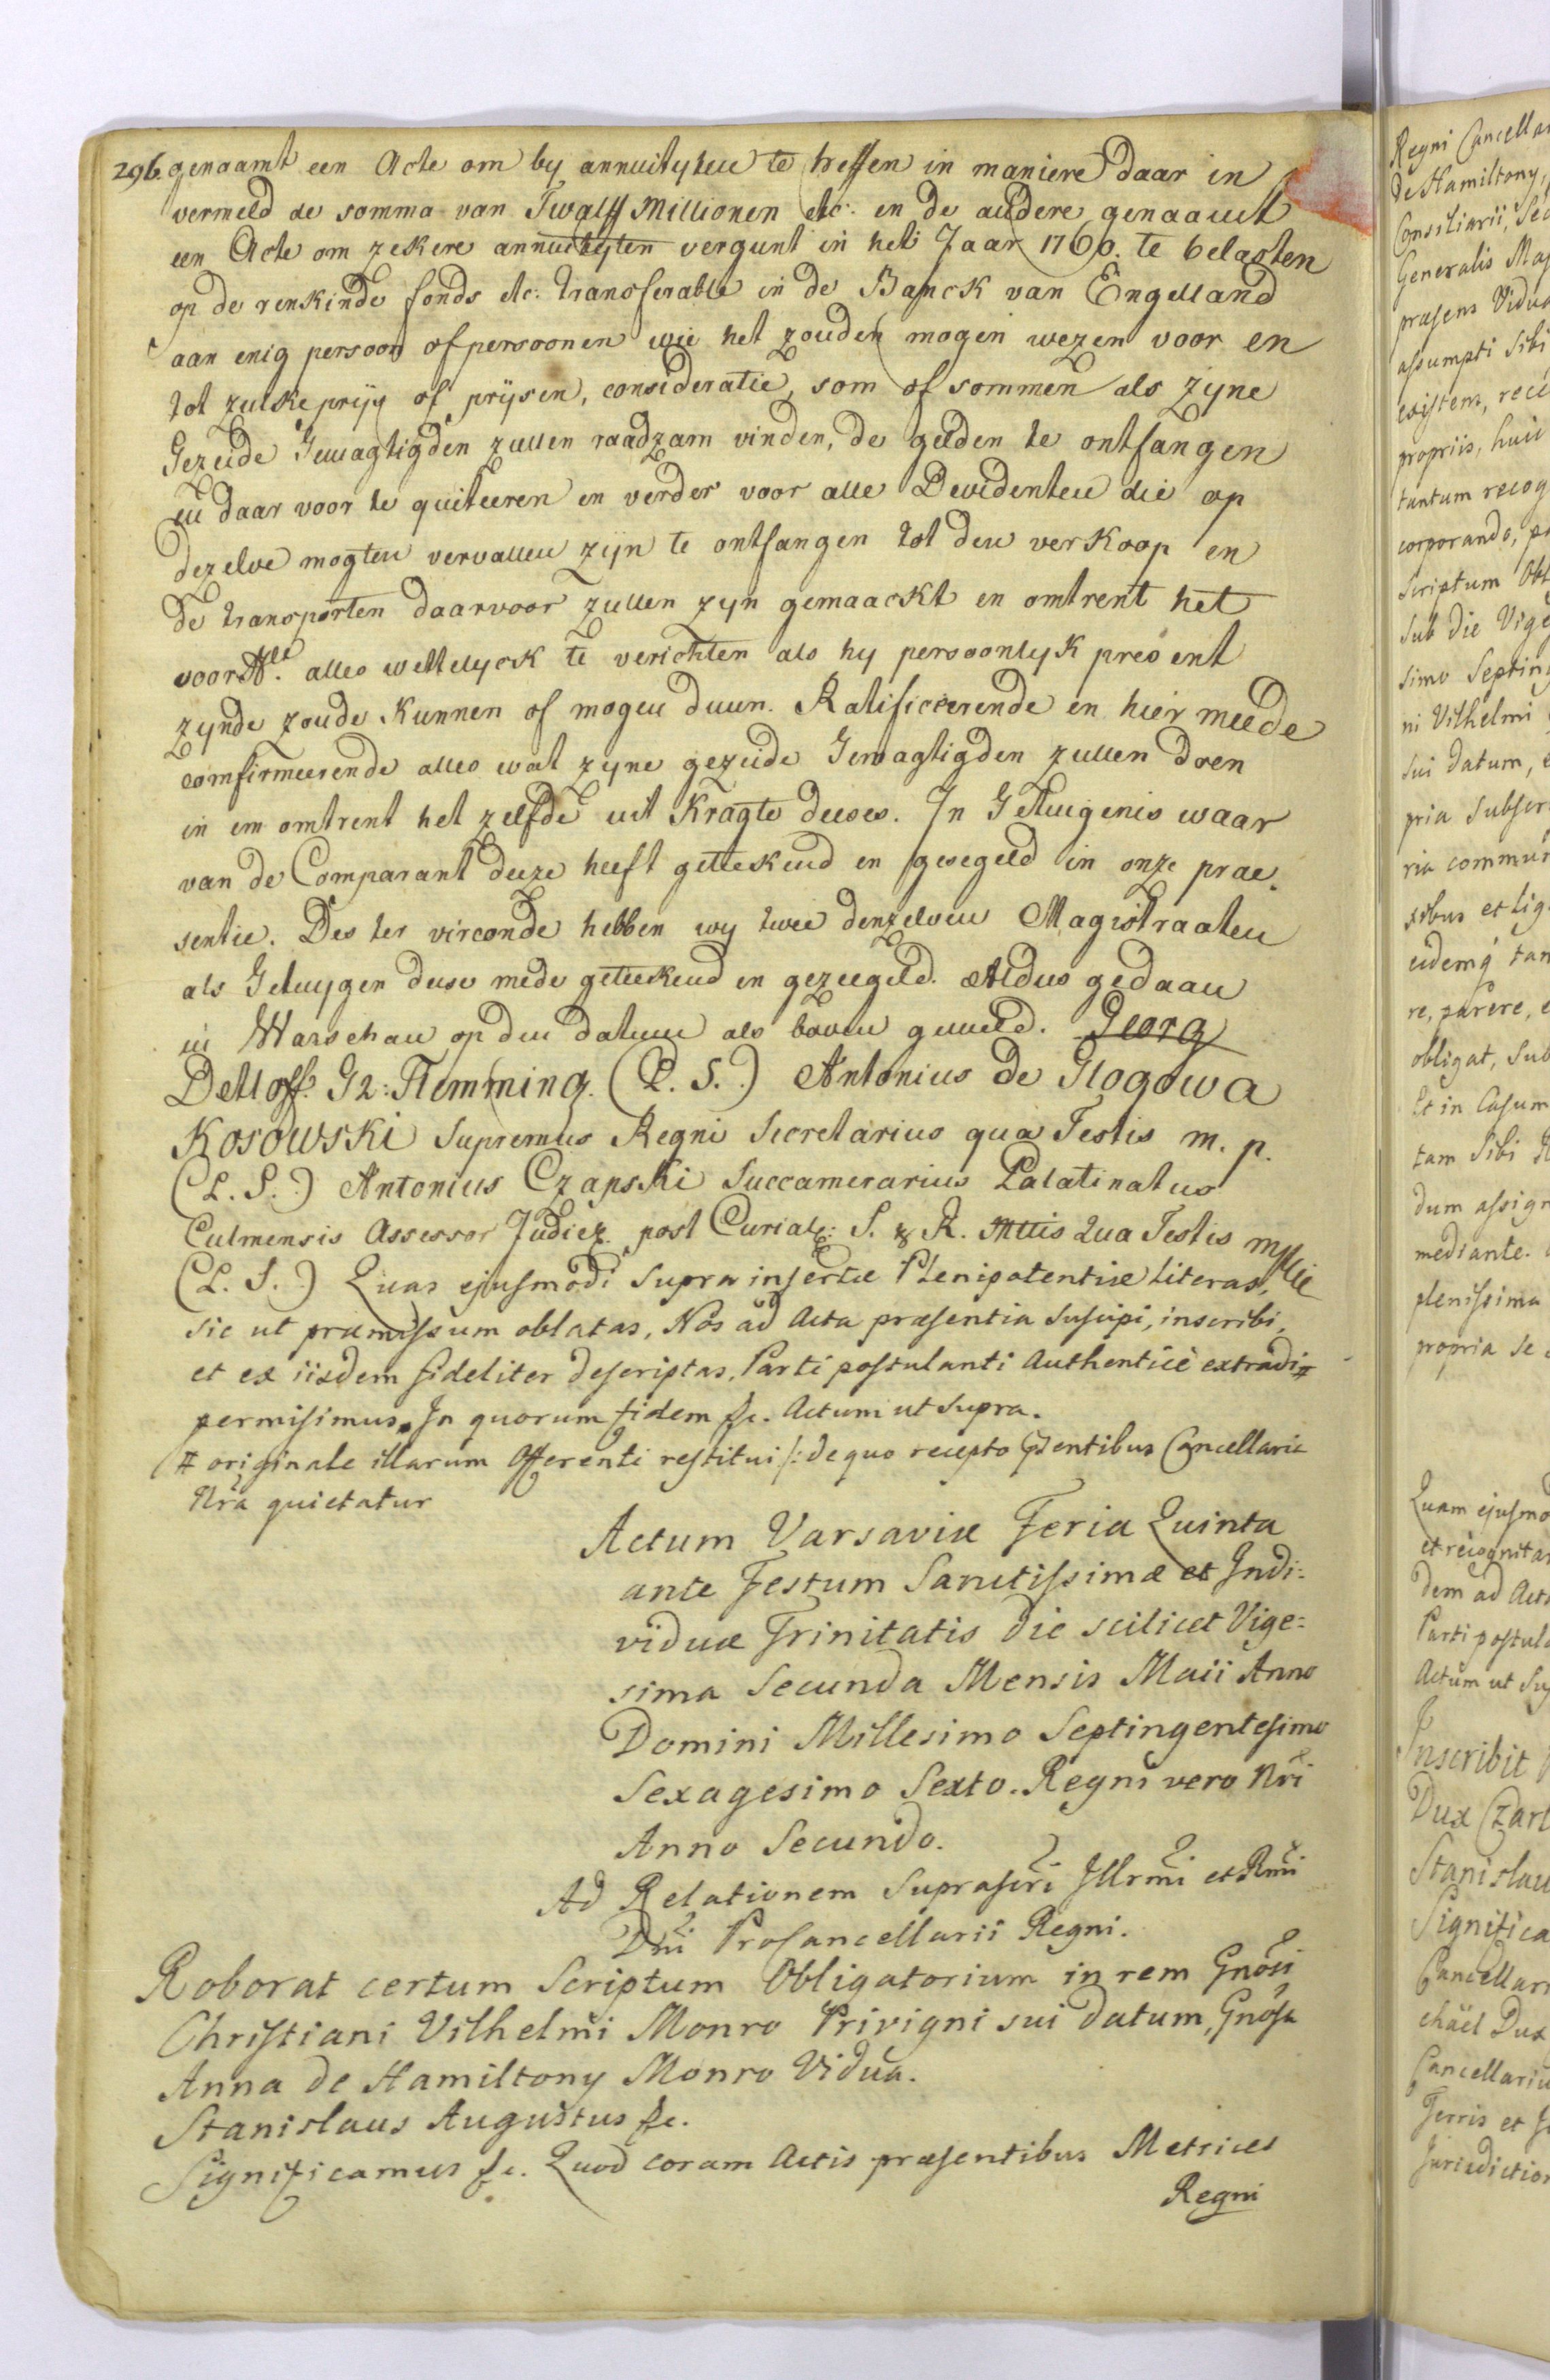 296. genaamt een Acte om by annuityten te heffen in maniere daar in
vermeld de somma van Twalff Millionen etc: en de andere genaamt
een Acte om zekere annuityten vergunt in het Jaar 1760. te belasten
op de renkinde fonds etc: transferable in de Banck van Engelland
aan enig persoon of persoonen wie het zouden mogen wezen voor en
tot zulke prijz of prijsen, consideratie, som of sommen als zyne
Gezeide Gemagtigden zullen raadzam vinden, de gelden te ontfangen
en daar voor te quiteeren en verder voor alle Devidenten die op
dezelve mogten vervallen zijn te ontfangen tot den verkoop en
de transporten daarvoor zullen zyn gemaackt en omtrent het
voor alles wettelyck te verichten als hy persoonlyk present
zynde zoude kunnen of mogen duun. Ratificeerende en hier meede
comfirmeerende alles wat zyne gezeide Gemagtigden zullen doen
in em omtrent het zelfde uit kragte deeses. In Getuigenis waar
van de Comparant deeze heeft geteekend en gesegeld in onze prae-
sentie. Des ter virconde hebben wy twee denzelven Magistraaten
als Getuygen dese mede geteekend en gezeegeld. Aldus gedaan
in Warschau op den datum als boven gemeld. Georg
Detloff. Gr: Flemming. (L. S.) Antonius de Glogowa
Kosowski Supremus Regni Secretarius qua Testis m. p.
(L. S.) Antonius Czapski Succamerarius Palatinatus
Culmensis Assessor Judicz. post Curial: S. R. Mttis Qua Testis mp
(L. S.) Quas ejusmodi supra insertæ Plenipotentiæ literas,
sic ut præmissum oblatas, Nos ad Acta præsentia suscipi, inscribi,
et ex iisdem fideliter descriptas, Parti postulanti Authenticè extradi #
permisimus. In quorum fidem &c. Actum ut supra.
# originale illarum Offerenti restitui /: de quo recepto pñtentibus Cancellariæ
Nrã quietatur
Actum Varsaviæ Feria Quinta
ante Festum Sanctissimæ et Indi-
viduæ Trinitatis die scilicet Vige-
sima Secunda Mensis Maii Anno
Domini Millesimo Septingentesimo
Sexagesimo Sexto. Regni vero Nri
Anno Secundo.
Ad Relationem Suprascri Illrmi et Rmi
Dni Procancellarii Regni.
Roborat certum Scriptum Obligatorium in rem Gnosi
Christiani Vilhelmi Monro Privigni sui datum, Gnosa
Anna de Hamiltony Monro Vidua.
Stanislaus Augustus &c.
Significamus &c. Quod coram Actis præsentibus Metrices
Regni
Regni Cancellar
de Hamiltony,
Consiliarii, Sec
Generalis Maj
præsens Vidua
assumpti sibi
existens, rece
propriis, huic
tantum recog
corporando, p
Scriptum Obl
sub die Vige
simo Septing
ni Vilhelmi
sui datum, e
pria subscr
ria commun
xibus et lig
eidemq tan
re, parere, e
obligat, sub
Et in Casum
tam sibi
dum assign
mediante.
plenissima
propria se
Quam ejusmo
et recognitam
dem ad Acta
Parti postula
Actum ut Su
Inscribit
Dux Czart
Stanislau
Significa
Cancellari
chäel Dux
Cancellariu
Terris et
Jurisdiction